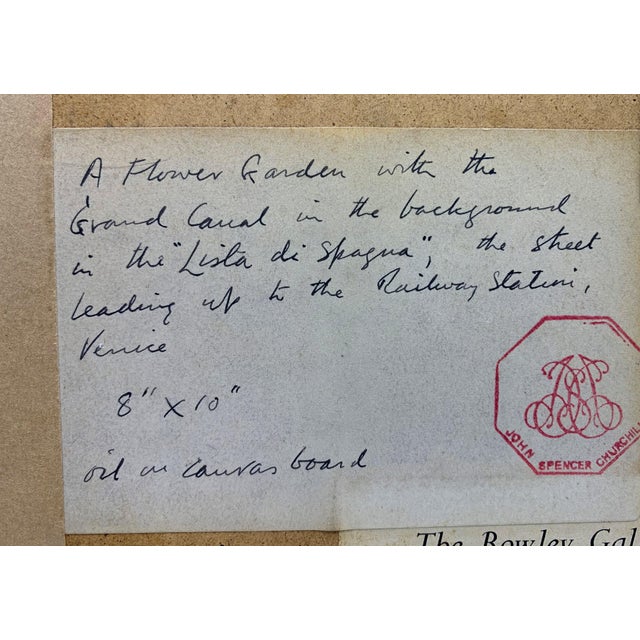 A Flower Garden with the
Grand Canal in the background
in the "Lista di Spagna", the street
leading up to the Railway Station,
Venice
8" x 10"
oil on canvas board
JOHN SPENCER CHURCHILL
The Rowley Gal